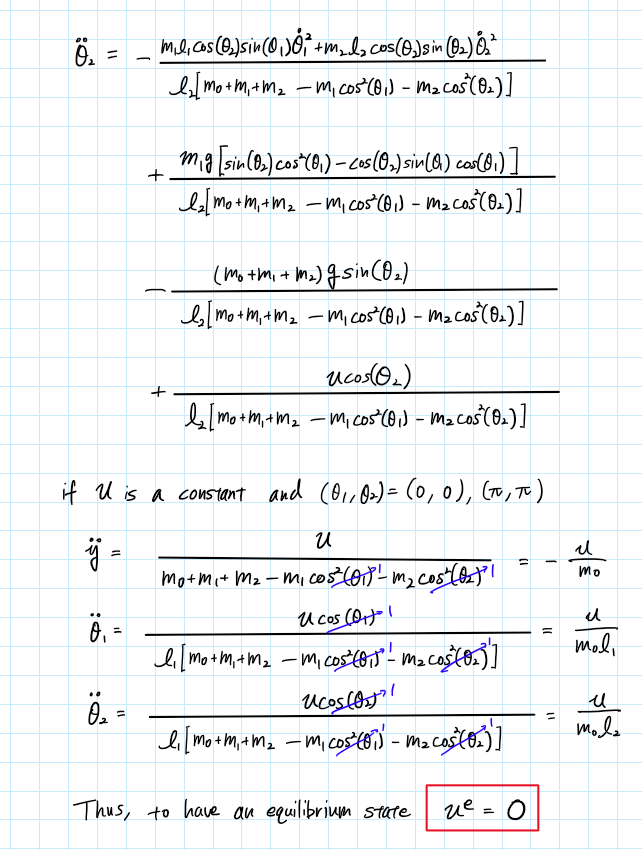 θ̈₂ = - (m₁l₁cos(θ₂)sin(θ₁)θ̇₁² + m₂l₂cos(θ₂)sin(θ₂)θ̇₂²) / (l₂[m₀+m₁+m₂ - m₁cos²(θ₁) - m₂cos²(θ₂)])
+ (m₁g[sin(θ₂)cos²(θ₁) - cos(θ₂)sin(θ₁)cos(θ₁)]) / (l₂[m₀+m₁+m₂ - m₁cos²(θ₁) - m₂cos²(θ₂)])
- ((m₀+m₁+m₂)g sin(θ₂)) / (l₂[m₀+m₁+m₂ - m₁cos²(θ₁) - m₂cos²(θ₂)])
+ (u cos(θ₂)) / (l₂[m₀+m₁+m₂ - m₁cos²(θ₁) - m₂cos²(θ₂)])
if u is a constant and (θ₁,θ₂)=(0, 0), (π,π)
ÿ = u / (m₀+m₁+m₂ - m₁cos²(θ₁)→1 - m₂cos²(θ₂)→1) = - u/m₀
θ̈₁ = u cos(θ₁)→1 / (l₁[m₀+m₁+m₂ - m₁cos²(θ₁)→1 - m₂cos²(θ₂)→1]) = u/(m₀l₁)
θ̈₂ = u cos(θ₂)→1 / (l₁[m₀+m₁+m₂ - m₁cos²(θ₁)→1 - m₂cos²(θ₂)→1]) = u/(m₀l₂)
Thus, to have an equilibrium state uᵉ = 0